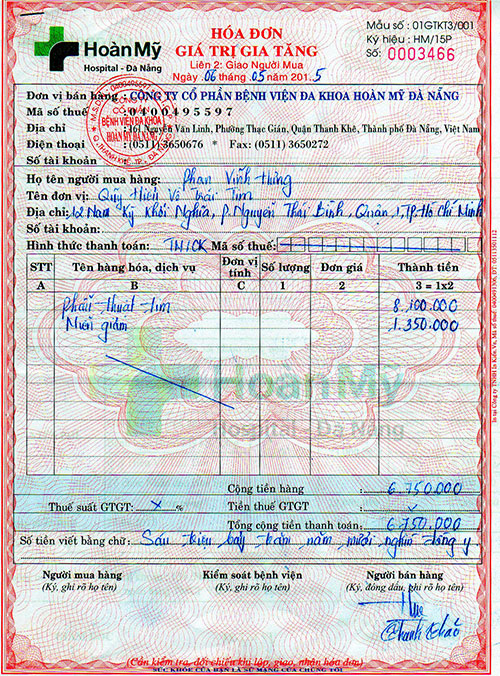 Hoàn Mỹ
Hospital - Đà Nẵng
HÓA ĐƠN
GIÁ TRỊ GIA TĂNG
Liên 2: Giao Người Mua
Ngày 06 tháng 05 năm 2015
Mẫu số : 01GTKT3/001
Ký hiệu : HM/15P
Số: 0003466
Đơn vị bán hàng : CÔNG TY CỔ PHẦN BỆNH VIỆN ĐA KHOA HOÀN MỸ ĐÀ NẴNG
Mã số thuế : 0400495597
Địa chỉ : 161 Nguyễn Văn Linh, Phường Thạc Gián, Quận Thanh Khê, Thành phố Đà Nẵng, Việt Nam
Điện thoại : (0511) 3650676 * Fax: (0511) 3650272
Số tài khoản :
BỆNH VIỆN ĐA KHOA
HOÀN MỸ ĐÀ NẴNG
Họ tên người mua hàng: Phan Vĩnh Hưng
Tên đơn vị: Quỹ Hiền Về Trái Tim
Địa chỉ: 12 Nam Kỳ Khởi Nghĩa, P. Nguyễn Thái Bình, Quận 1, TP. Hồ Chí Minh
Số tài khoản:
Hình thức thanh toán: TM/CK Mã số thuế:
STT Tên hàng hóa, dịch vụ Đơn vị tính Số lượng Đơn giá Thành tiền
A B C 1 2 3 = 1x2
Phẫu thuật tim 8.100.000
Miễn giảm 1.350.000
Hoàn Mỹ
Hospital - Đà Nẵng
Cộng tiền hàng : 6.750.000
Thuế suất GTGT: x % Tiền thuế GTGT :
Tổng cộng tiền thanh toán: 6.750.000
Số tiền viết bằng chữ: Sáu triệu bảy trăm năm mươi nghìn đồng y
Người mua hàng Kiểm soát bệnh viện Người bán hàng
(Ký, ghi rõ họ tên) (Ký, ghi rõ họ tên) (Ký, đóng dấu, ghi rõ họ tên)
Thanh Thảo
(Cần kiểm tra, đối chiếu khi lập, giao, nhận hóa đơn)
SỨC KHỎE CỦA BẠN LÀ SỨ MẠNG CỦA CHÚNG TÔI